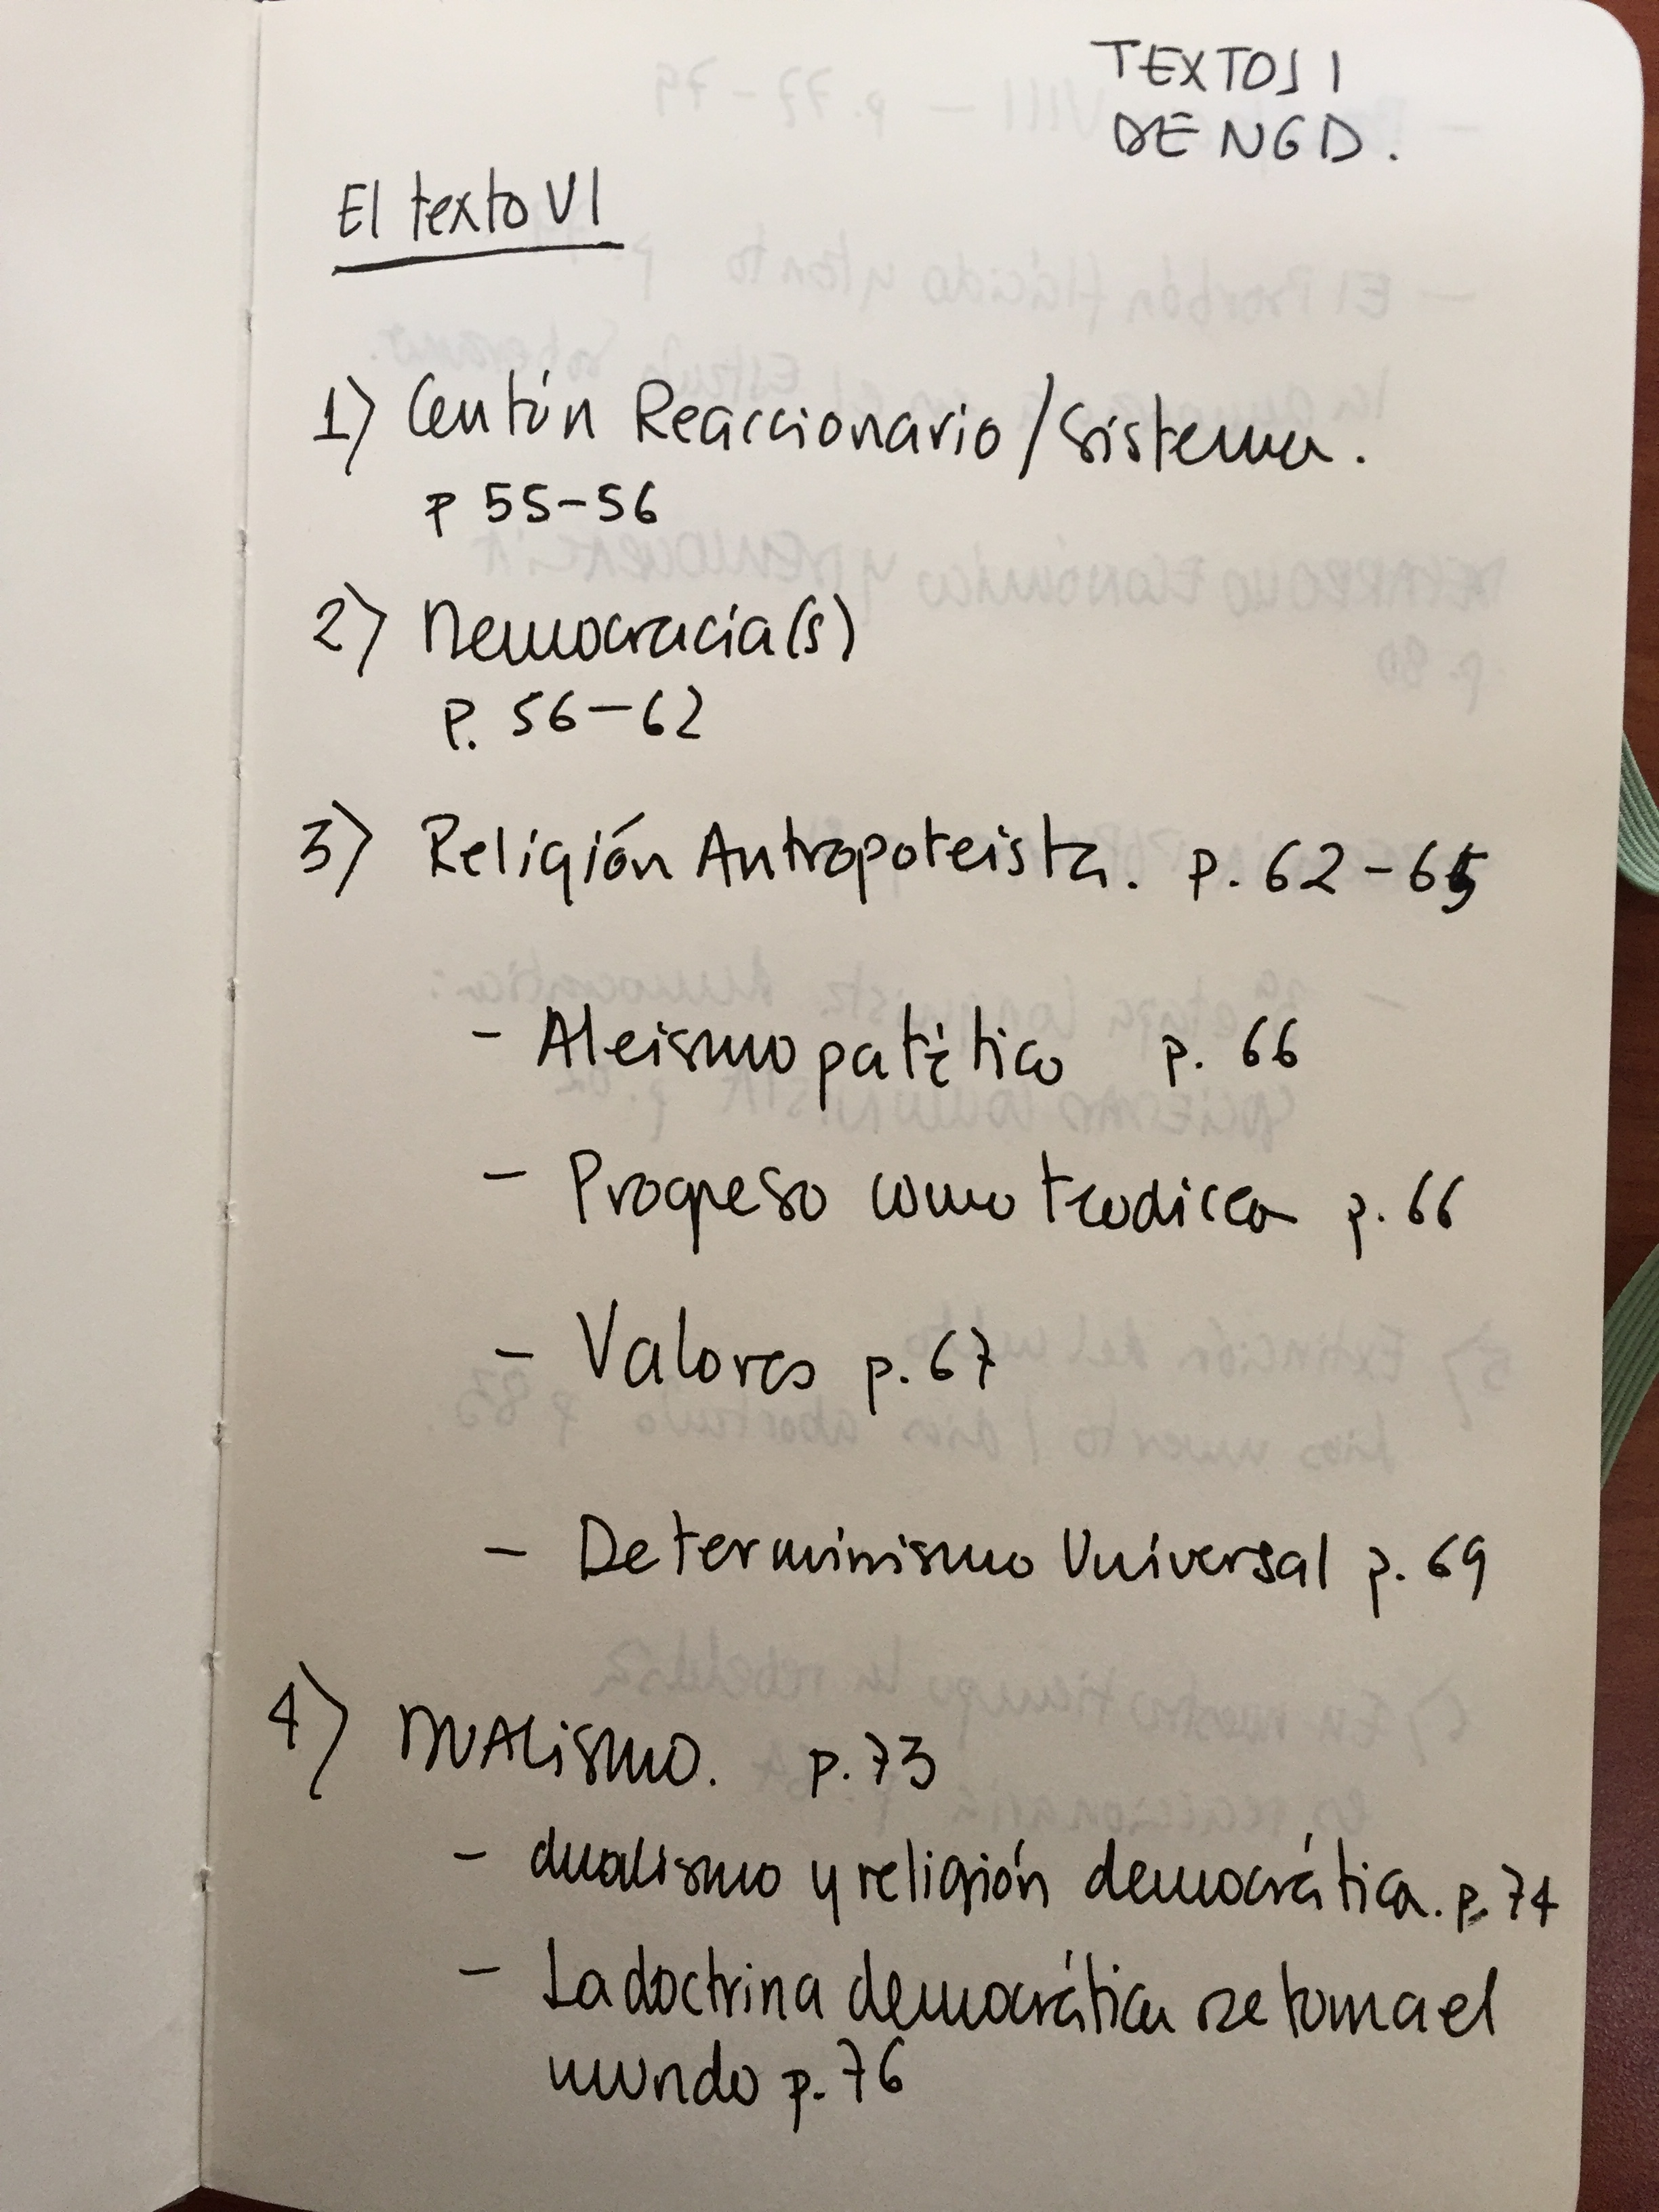 TEXTOS I
DE NGD.
El texto VI
1) Centón Reaccionario/Sistema.
p 55-56
2) Democracia(s)
p. 56-62
3) Religión Antropoteista. p. 62-65
- Ateismo patético p. 66
- Progreso como teodicea p. 66
- Valores p. 67
- Determinismo Universal p. 69
4) DUALISMO. p. 73
- dualismo y religión democrática. p. 74
- La doctrina democrática se toma el
mundo p. 76